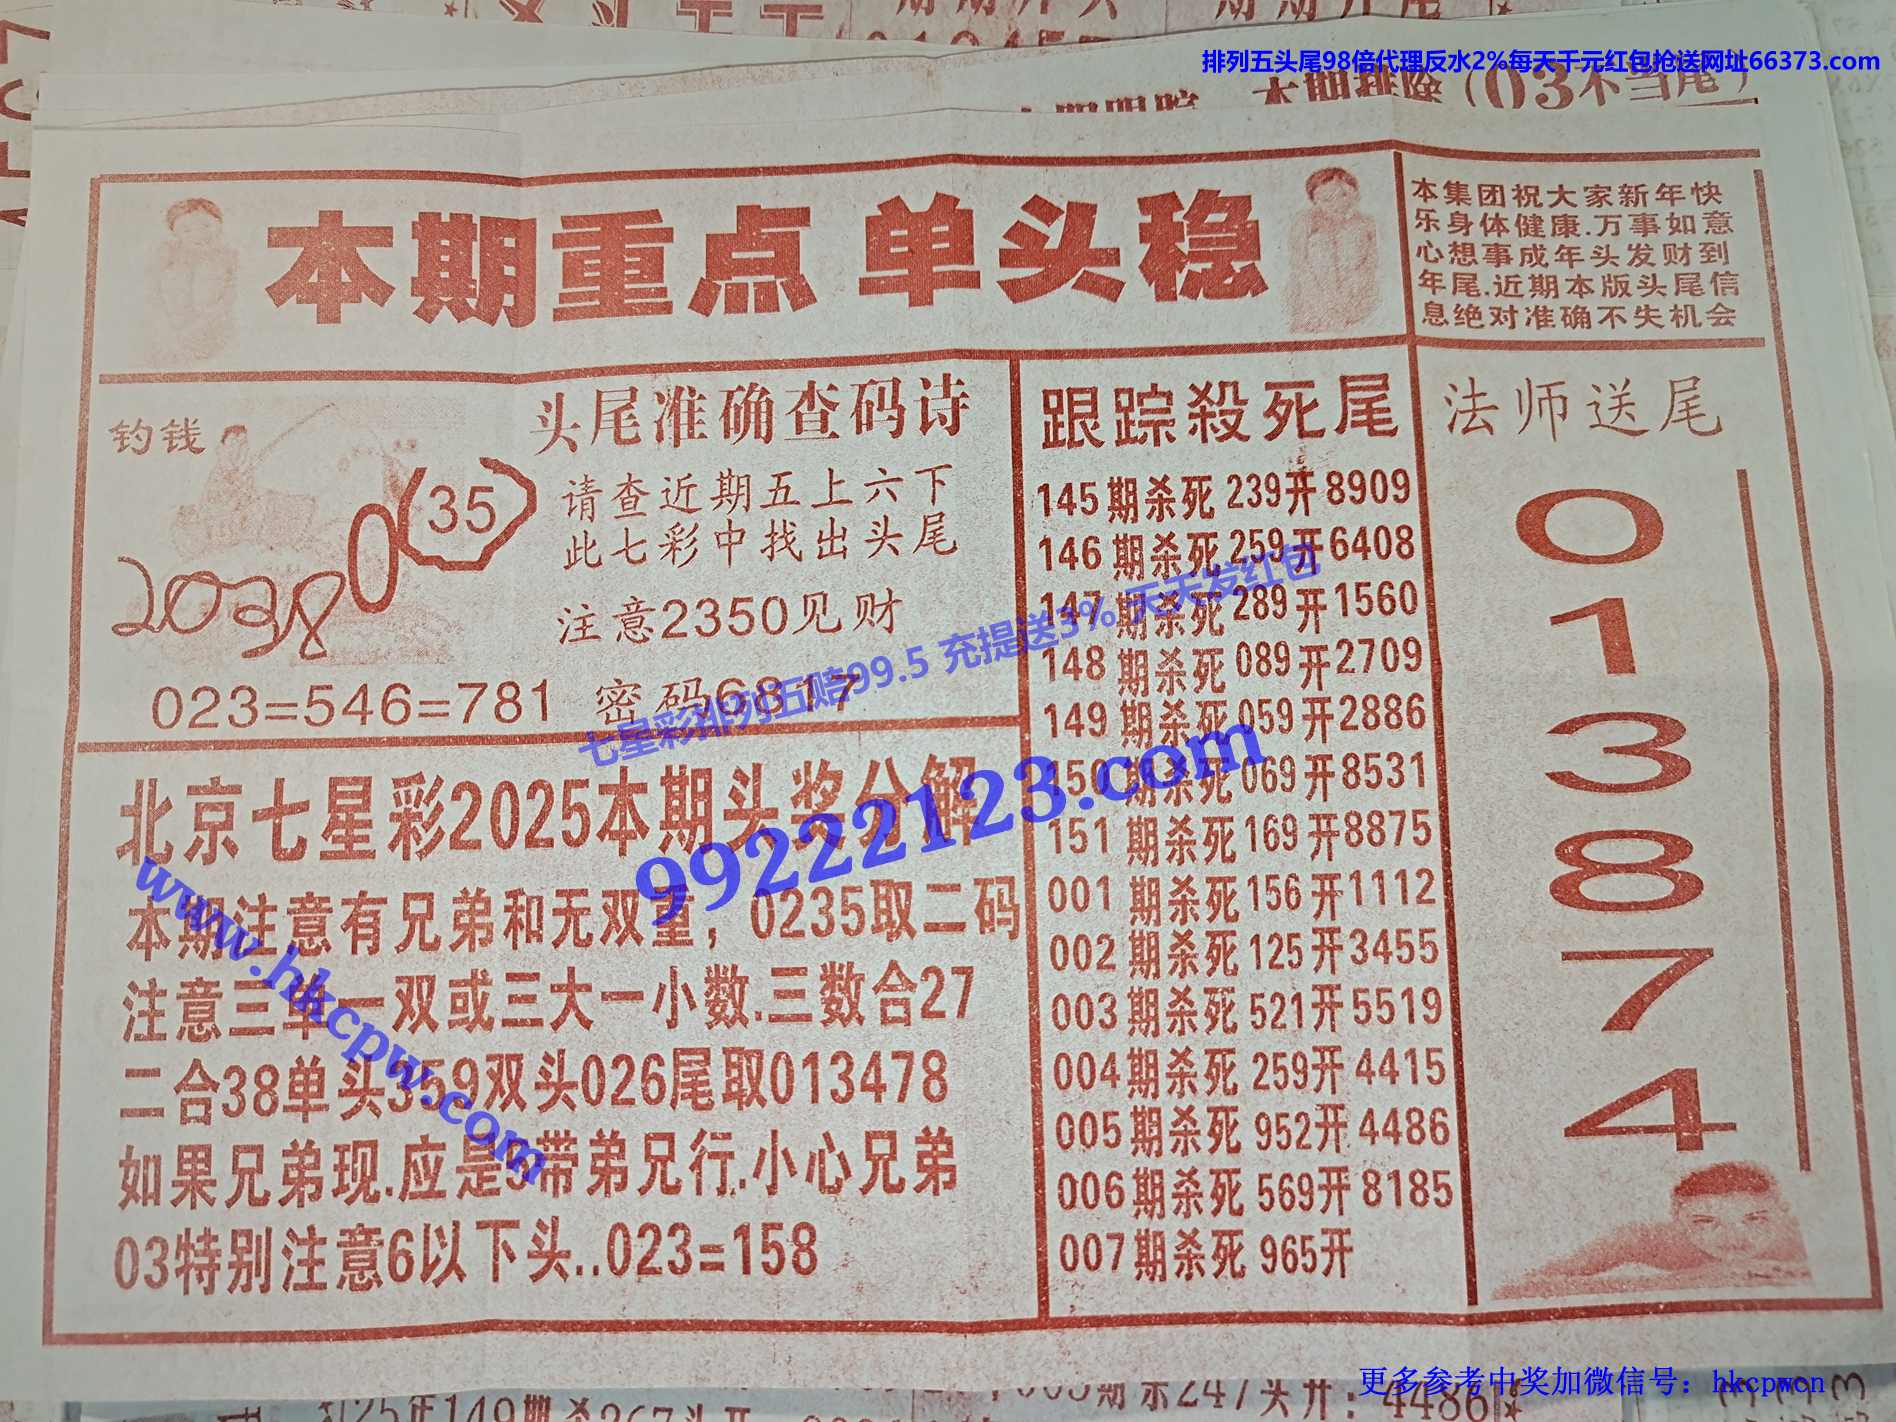 排列五头尾98倍代理反水2%每天千元红包抢送网址66373.com
本期排除(03不当尾)
本期重点 单头稳
本集团祝大家新年快
乐身体健康.万事如意
心想事成年头发财到
年尾.近期本版头尾信
息绝对准确不失机会
钓钱
0(35)
2038
头尾准确查码诗
请查近期五上六下
此七彩中找出头尾
注意2350见财
023=546=781 密码6817
北京七星彩2025本期头奖分解
本期注意有兄弟和无双重，0235取二码
注意三单一双或三大一小数.三数合27
二合38单头359双头026尾取013478
如果兄弟现.应是9带弟兄行.小心兄弟
03特别注意6以下头..023=158
跟踪殺死尾
145期杀死239开8909
146期杀死259开6408
147期杀死289开1560
148期杀死089开2709
149期杀死059开2886
150期杀死069开8531
151期杀死169开8875
001期杀死156开1112
002期杀死125开3455
003期杀死521开5519
004期杀死259开4415
005期杀死952开4486
006期杀死569开8185
007期杀死965开
法师送尾
0
1
3
8
7
4
七星彩排列五赔99.5 充提送3% 天天发红包
99222123.com
www.hkcpw.com
更多参考中奖加微信号：hkcpwcn